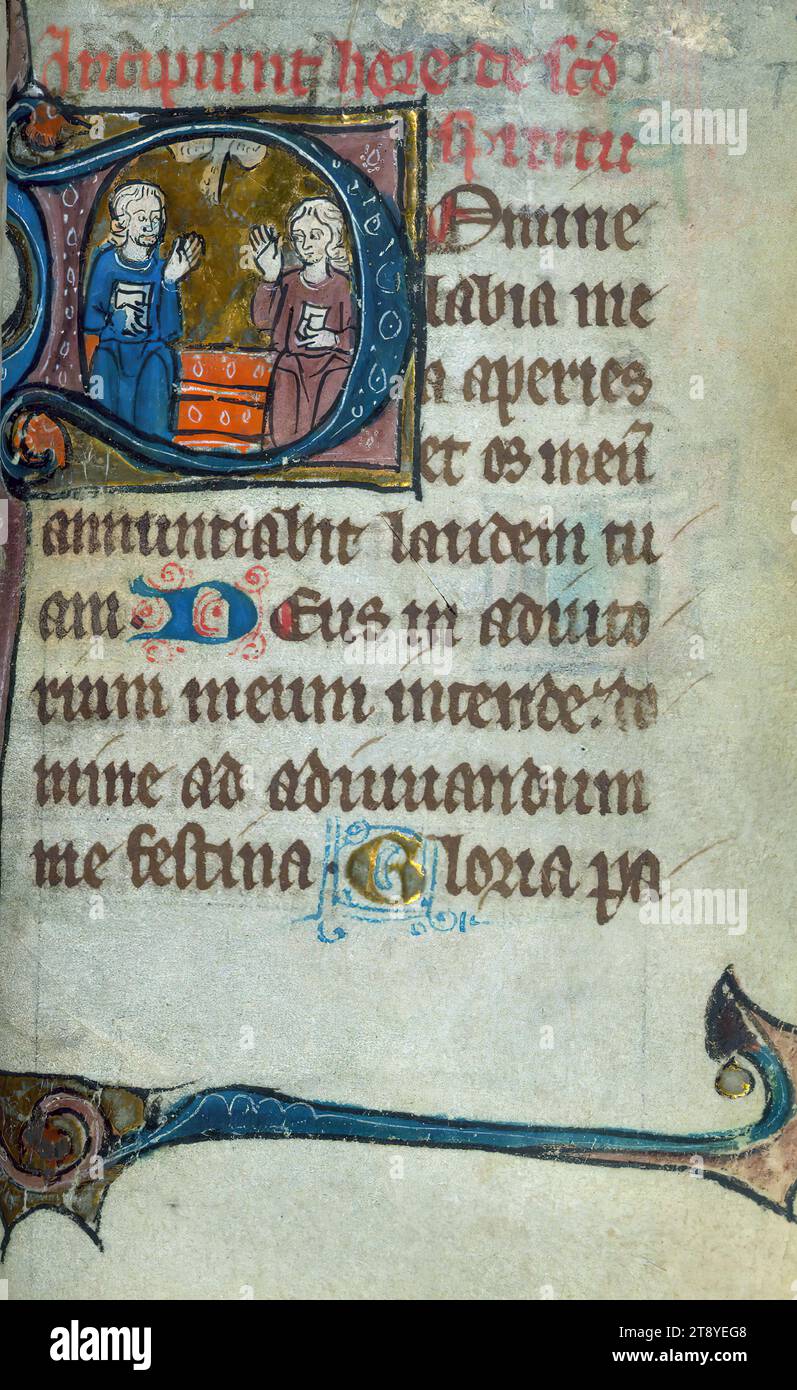 Incipiunt hore de sc̄o
spiritu
Omine
labia me
a aperies
et os meū
annuntiabit laudem tu
am. D Eus in adiuto
rium meum intende. do
mine ad adiuuandum
me festina. Gloria pa
alamy
Image ID: 2T8YEG8
www.alamy.com